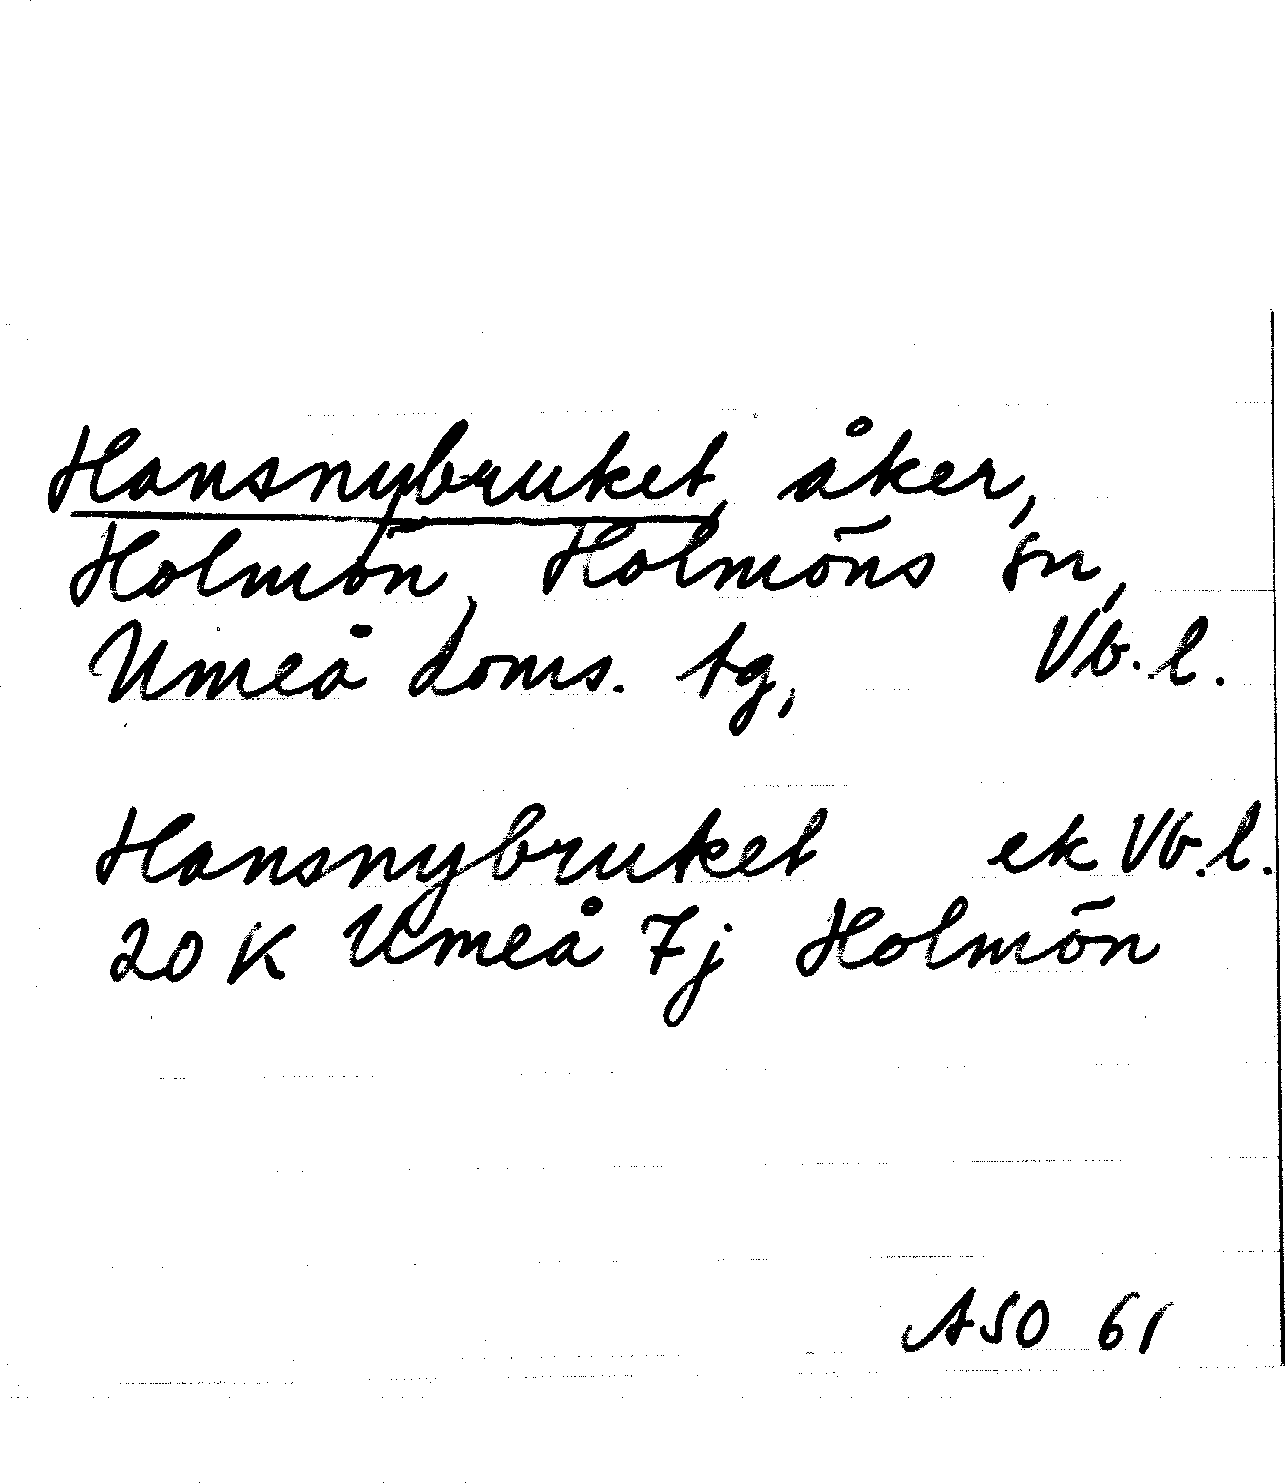 Hansnybruket, åker,
Holmön, Holmöns sn,
Umeå doms. tg, Vb. l.
Hansnybruket ek Vb. l.
20 K Umeå 7j Holmön
ASO 61